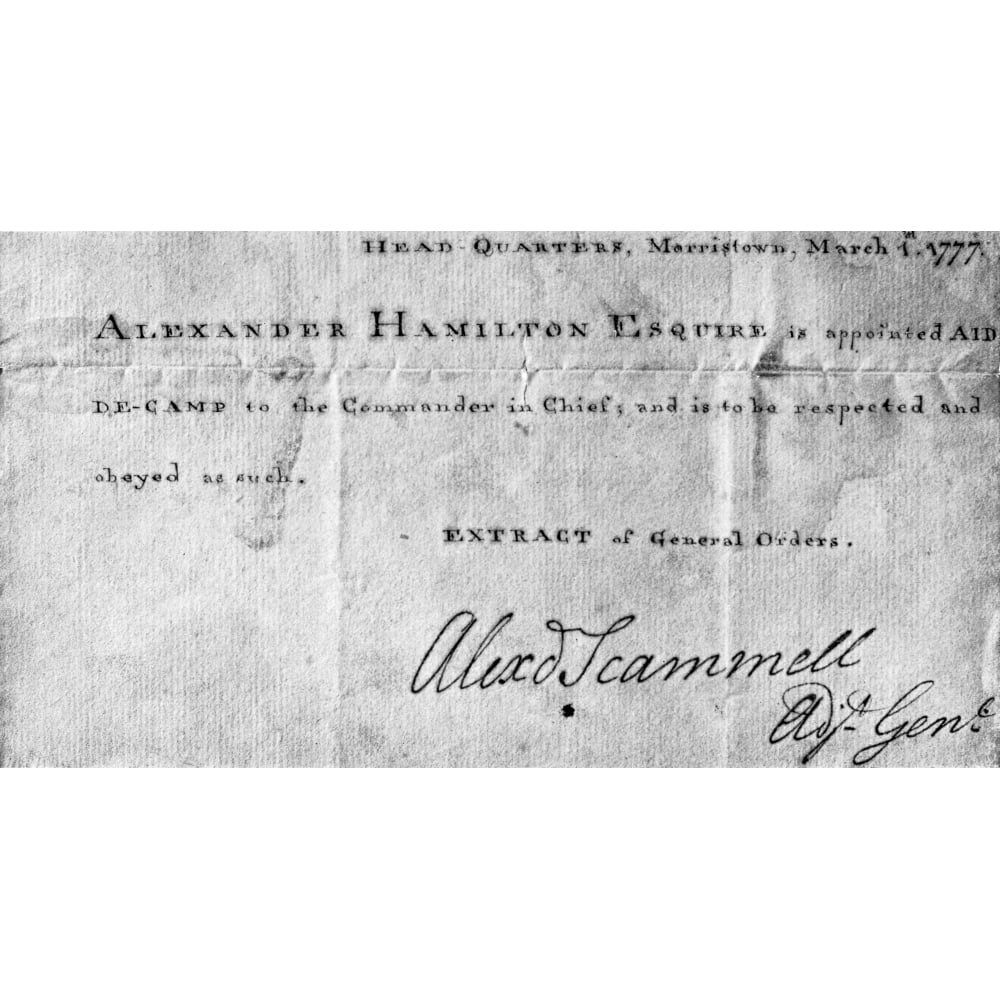 HEAD-QUARTERS, Morristown, March 1. 1777.
ALEXANDER HAMILTON ESQUIRE is appointed AID
DE-CAMP to the Commander in Chief; and is to be respected and
obeyed as such.
EXTRACT of General Orders.
Alexd Scammell
Adjt Genl